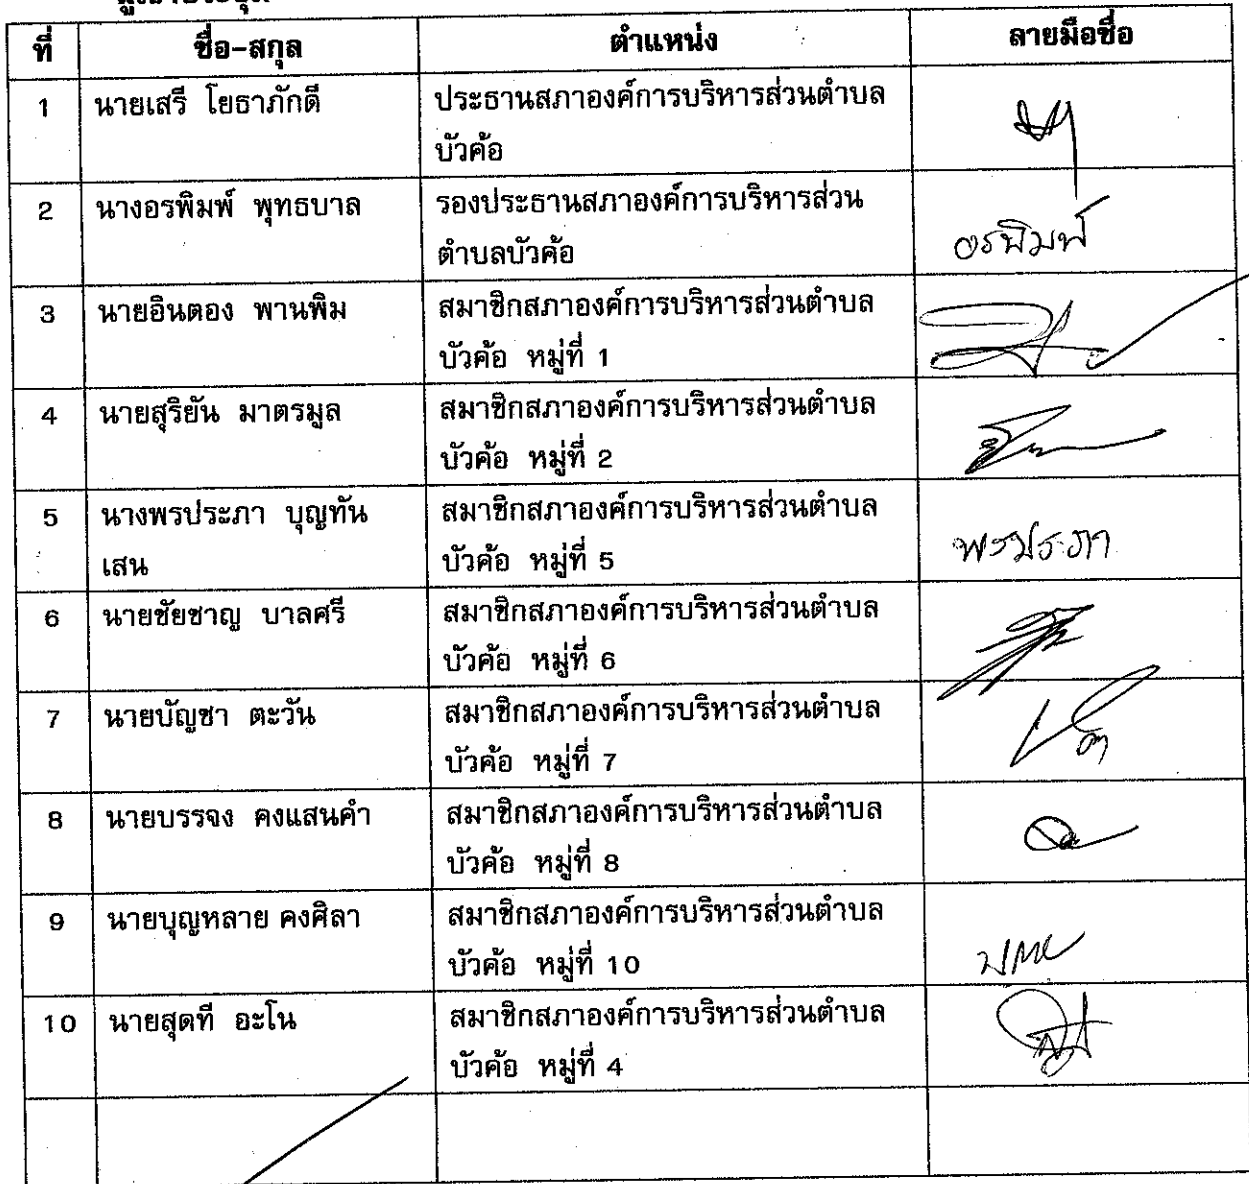 ที่ ชื่อ-สกุล ตำแหน่ง ลายมือชื่อ
1 นายเสรี โยธาภักดี ประธานสภาองค์การบริหารส่วนตำบล
บัวค้อ
2 นางอรพิมพ์ พุทธบาล รองประธานสภาองค์การบริหารส่วน
ตำบลบัวค้อ อรพิมพ์
3 นายอินตอง พานพิม สมาชิกสภาองค์การบริหารส่วนตำบล
บัวค้อ หมู่ที่ 1
4 นายสุริยัน มาตรมูล สมาชิกสภาองค์การบริหารส่วนตำบล
บัวค้อ หมู่ที่ 2
5 นางพรประภา บุญทัน สมาชิกสภาองค์การบริหารส่วนตำบล
เสน บัวค้อ หมู่ที่ 5 พรประภา
6 นายชัยชาญ บาลศรี สมาชิกสภาองค์การบริหารส่วนตำบล
บัวค้อ หมู่ที่ 6
7 นายบัญชา ตะวัน สมาชิกสภาองค์การบริหารส่วนตำบล
บัวค้อ หมู่ที่ 7
8 นายบรรจง คงแสนคำ สมาชิกสภาองค์การบริหารส่วนตำบล
บัวค้อ หมู่ที่ 8
9 นายบุญหลาย คงศิลา สมาชิกสภาองค์การบริหารส่วนตำบล
บัวค้อ หมู่ที่ 10
10 นายสุดที อะโน สมาชิกสภาองค์การบริหารส่วนตำบล
บัวค้อ หมู่ที่ 4